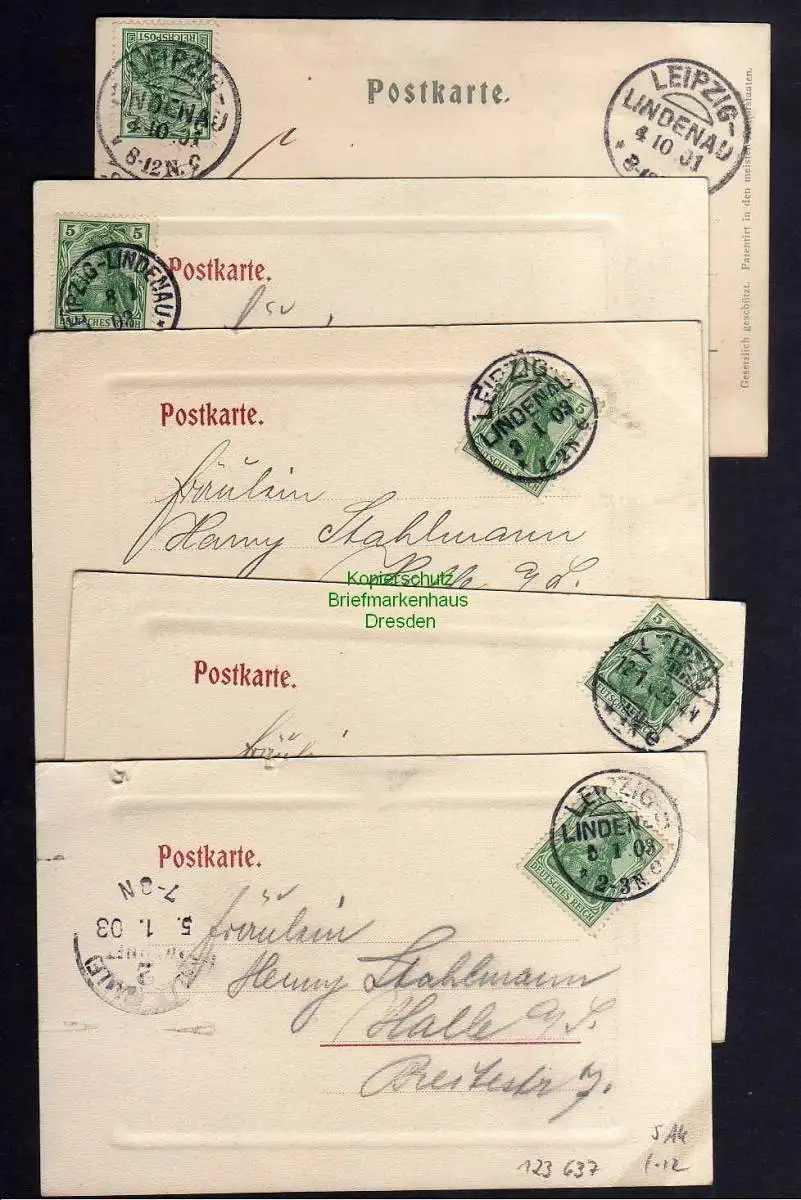 REICHSPOST
LEIPZIG-
LINDENAU
4 10 01
8-12 N. c
Postkarte.
LEIPZIG-
LINDENAU
4 10 01
* 8-12
Gesetzlich geschützt. Patentirt in den meisten
5 5
DEUTSCHES REICH
LEIPZIG-LINDENAU *
8 1
03
Postkarte.
Postkarte.
LEIPZIG-
LINDENAU
1 03
* 1-2 N
5
DEUTSCHES REICH
Fräulein
Hanny Stahlmann
Halle a/S.
Kopierschutz
Briefmarkenhaus
Dresden
Postkarte.
5
12 1
Fräulei
Postkarte.
LEIPZIG-
LINDENAU
1 03
* 2-3 N c
DEUTSCHES REICH
7-8 N
5. 1. 03
2
Fräulein
Henny Stahlmann
Halle a/S.
Breitestr 7.
123 637
5 Ak
1-12